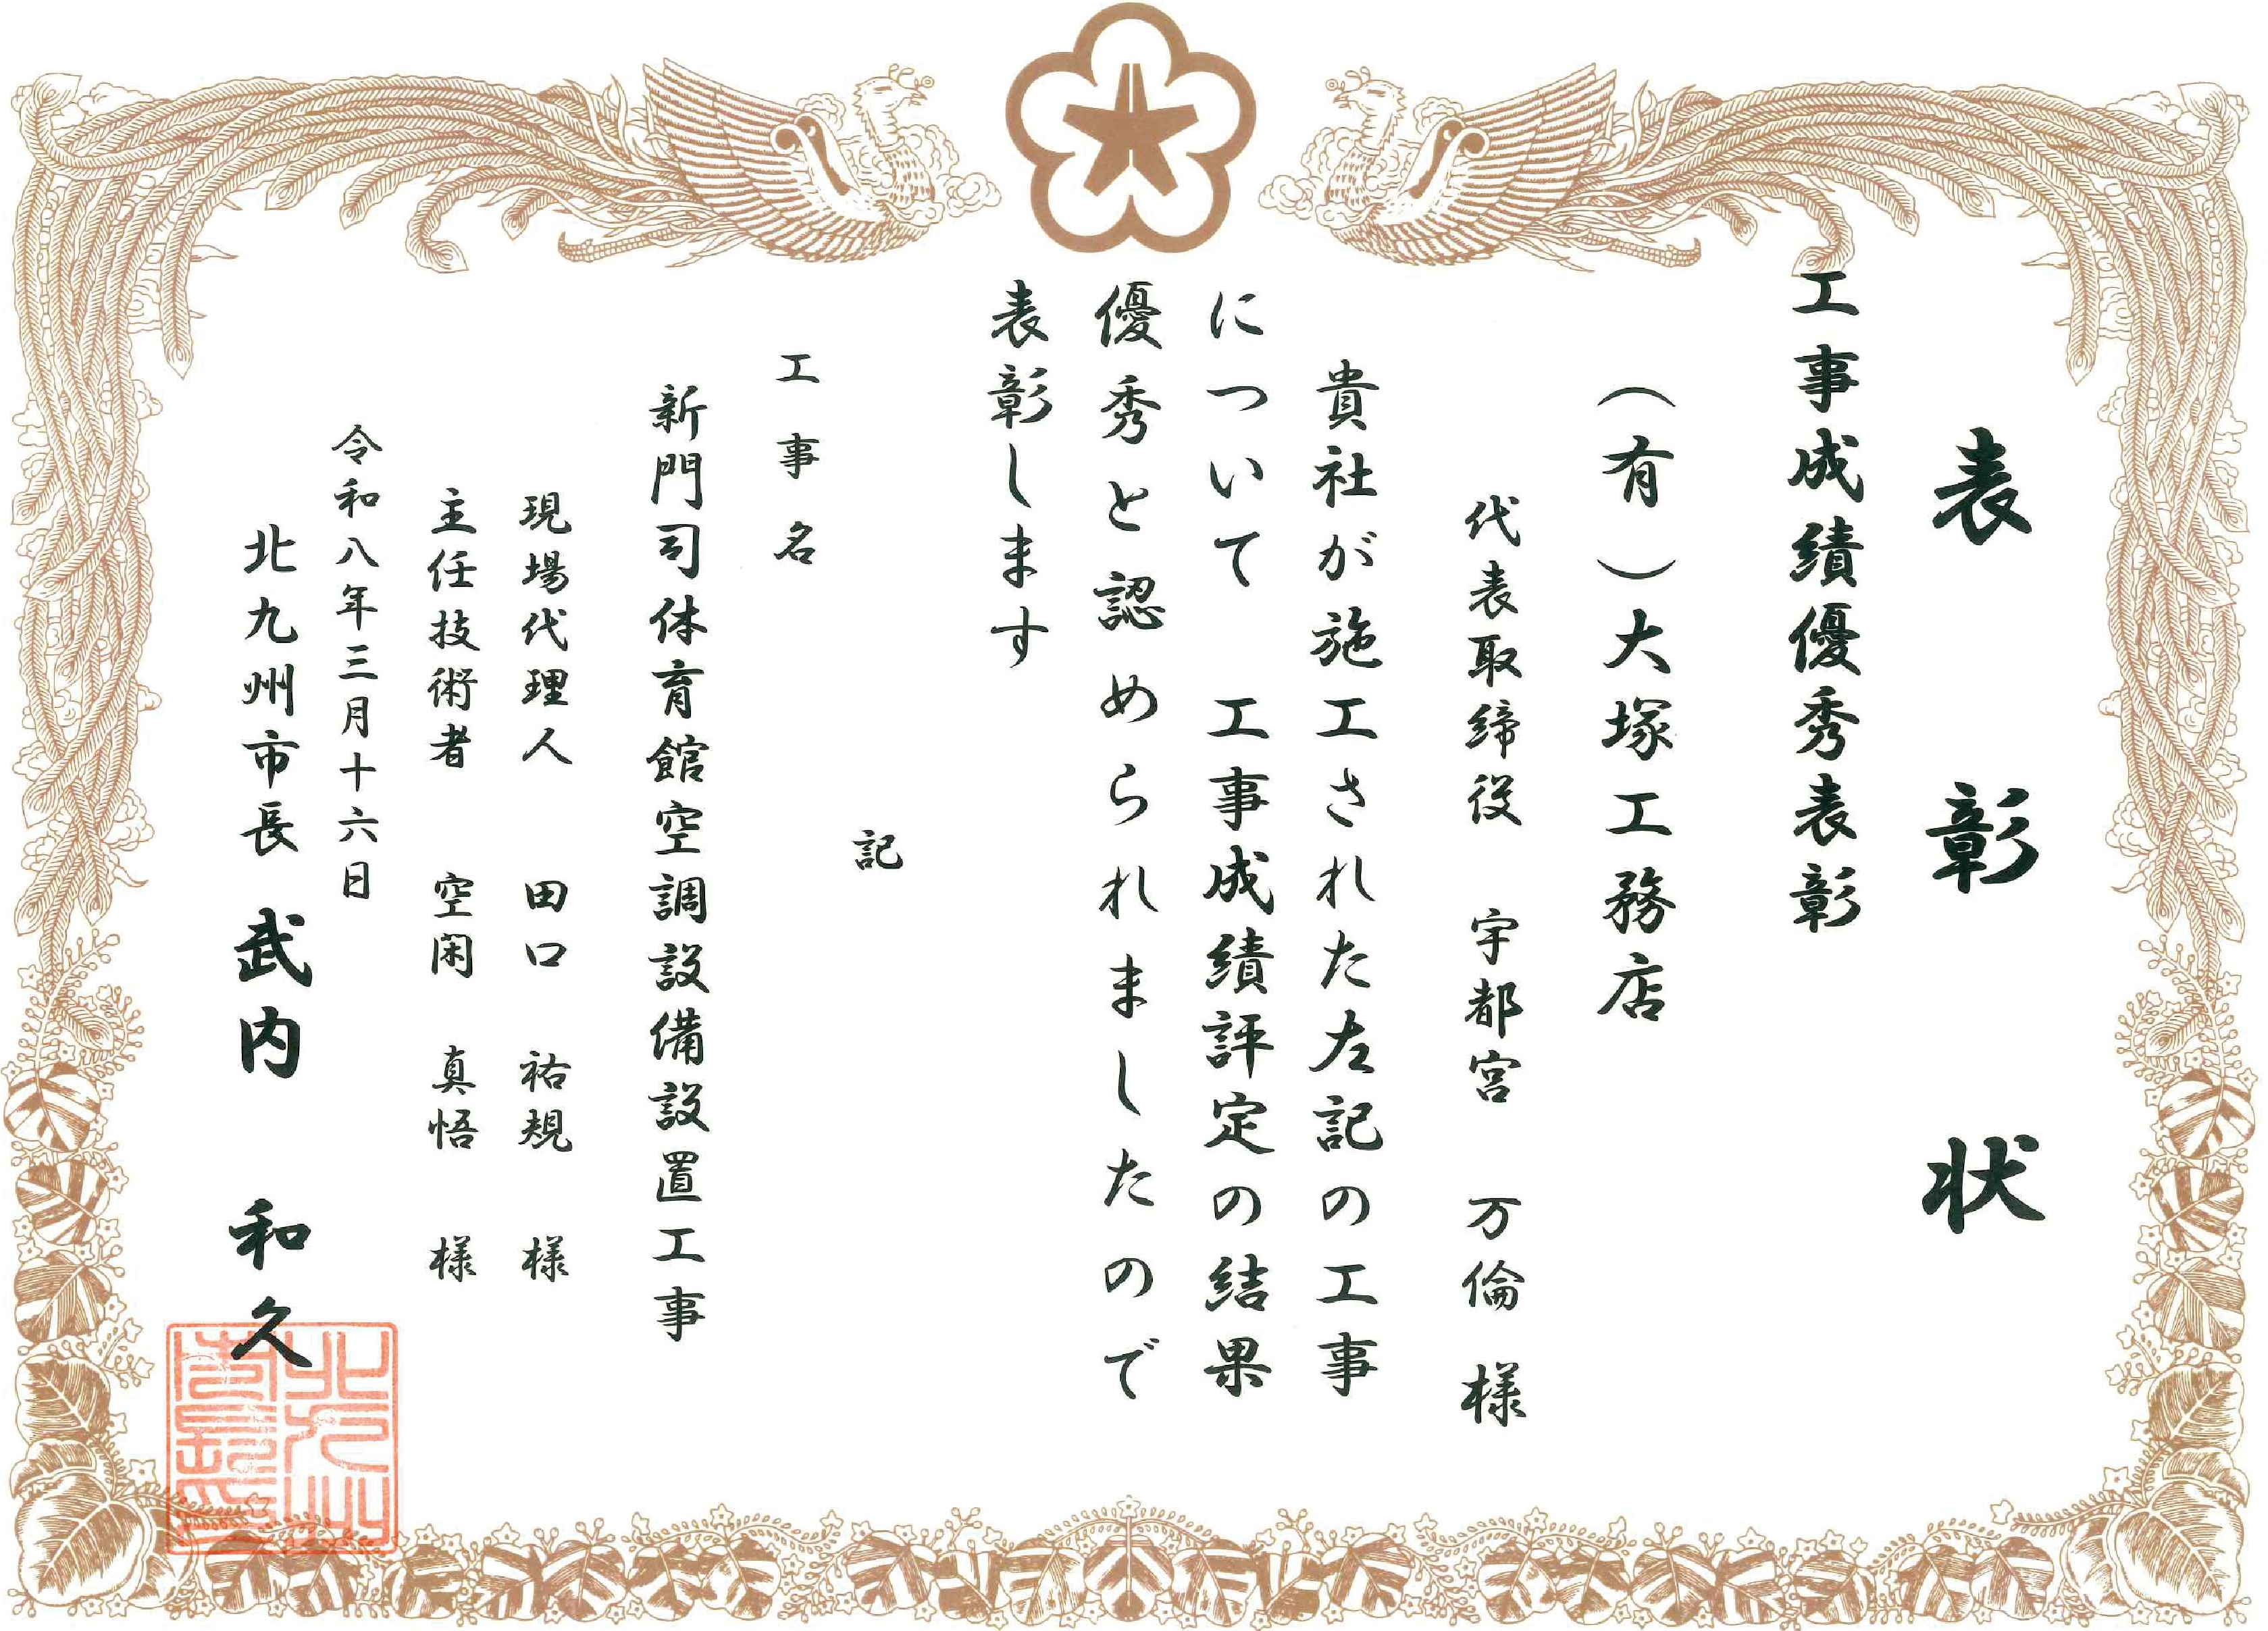 表彰状
工事成績優秀表彰
（有）大塚工務店
代表取締役 宇都宮 万倫 様
貴社が施工された左記の工事
について 工事成績評定の結果
優秀と認められましたので
表彰します
記
工事名
新門司体育館空調設備設置工事
現場代理人 田口 祐規 様
主任技術者 空閑 真悟 様
令和八年三月十六日
北九州市長 武内 和久
北九州市長印